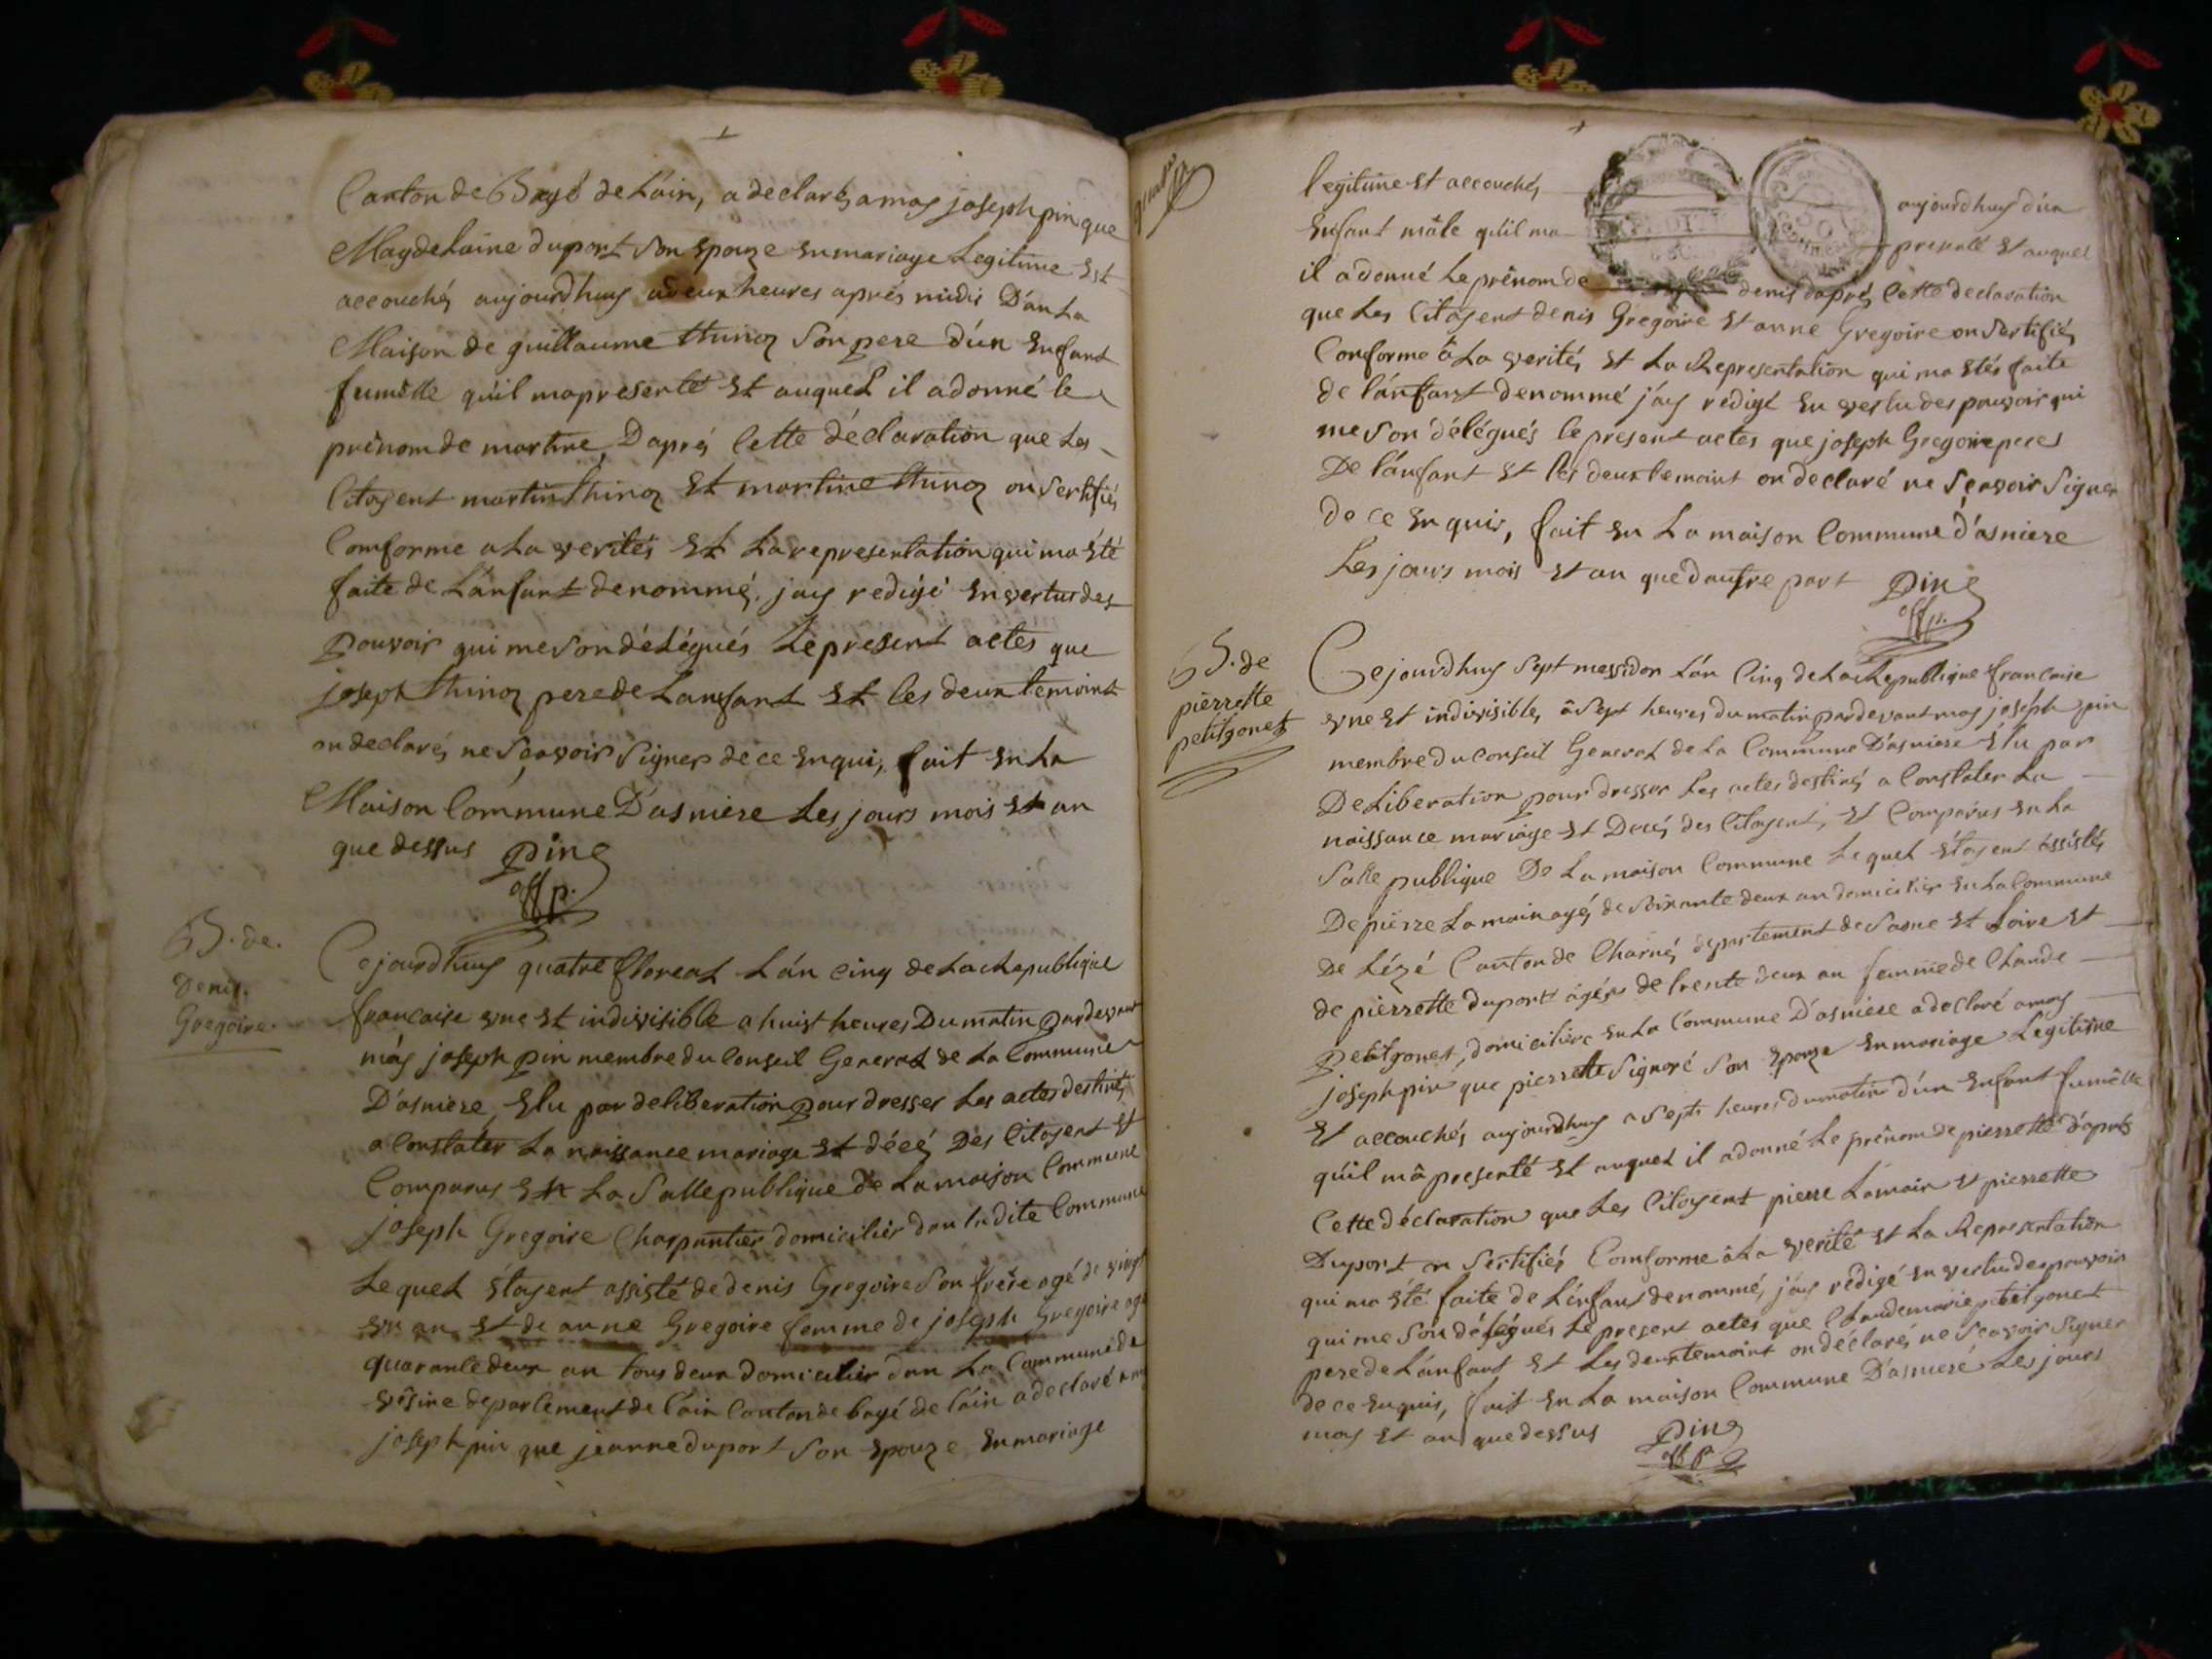 Canton de Bagé de Láin, a declaré a moy joseph pin que
Magdelaine duport son epouze en mariage Legitime est
accouché aujourdhuy a deux heures aprés midis D'an La
Maison de guillaume thinoz son pere d'ún enfant
fumélle qúil ma presenté et auquel il a donné le
prénom de martine, D'aprés cette déclaration que Les
Citoyent martin thinoz et martine thinoz on sertifiés
Comforme a La verités et La representation qui ma été
faite de L'anfant denommé, jay redigé en vertus des
pouvoir qui me son délégués Le present actes que
joseph thinoz pere de Lanfant et les deux temoint
on declarés ne sçavoir signer de ce enqui, fait en La
Maison Commune D'asniere Les jours mois et an
que dessus Pin
offp.
B. de.
Denis.
Gregoire.
Cejourdhuy quatre floreal L'án cinq de La Republique
francaise une et indivisible a huit heures Du matin pardevant
móy joseph pin membre du Conseil General de La Commune
D'asniere, elu par deliberation pour dresser Les actes destinés
a Constater La naissance mariage et décé Des Citoyent et
Comparus en La Salle publique De La maison Commune
joseph Gregoire Charpantier domicilier dan ladite Commune
Lequel étoyent assisté de denis Gregoire son frére agé de vingt
un an et de anne Gregoire femme de joseph Gregoire agé
quarante deux an tous deux domicilier dan La Commune de
vésine deparlement de l'ain Canton de bagé de láin a declaré a moy
joseph pin que jeanne duport son epouze en mariage
legitime et accouchés aujourdhuy d'ún
enfant mâle qúil ma presenté et auquel
il a donné Le prénom de denis daprés Cette declaration
que Les Citoyent denis Gregoire et anne Gregoire on sertifiés
Conforme â La verités et La Representation qui ma étés faite
de l'ánfant denommé j'ay redigé en vertu des pouvoir qui
me son délégués le present actes que joseph Gregoire peres
De l'ánfant et les deux temoint on declaré ne sçavoir signer
de ce enquis, fait en La maison Commune d'asniere
Les jours mois et an que d'autre part Pin
offp.
B. de
pierrette
petitgonet
Cejourdhuy sept messidor L'án Cinq de La Republique francaise
une et indivisible, â sept heures du matin pardevant moy joseph pin
membre du Conseil General de La Commune D'asniere elu par
Deliberation pour dresser Les actes destinés a Constater La
naissance mariage et Decés des Citoyent, et Comparus en La
Salle publique De La maison Commune Lequel étoyent assistés
De piérre Lamain agés de soixante deux an domicilier en La Commune
De Lézé Canton de Charné, departement de Saone et Loire et
de piérrette duport agées de trente deux an femme de Claude
petitgonet, domiciliére en La Commune D'asniere a declaré a moy
joseph pin que pierrette Signoré son epouze en mariage Legitime
et accouchés aujourdhuy a sept heures du matin d'ún enfant fumélle
qúil mâ presenté et auquel il a donné Le prénom de pierrette d'aprés
Cette déclaration que Les Citoyent pierre Lamain et pierrette
Duport on sertifiés Comforme â La verité et La Representation
qui ma été faite de L'enfant denommé, jáy rédigé en vertus des pouvoir
qui me son délégués Le present actes que Claudemarie petitgonet
pere de Lánfant et Les deux temoint on déclarés ne scavoir signer
de ce enquis, fait en La maison Commune D'asniere Les jours
moy et an que dessus Pin
offp